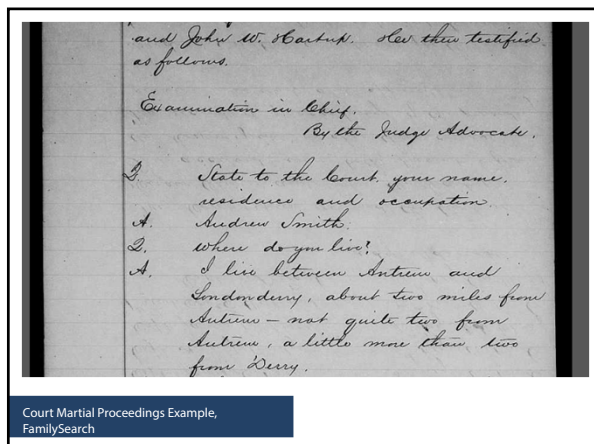 and John W. Hartup. He then testified
as follows.
Examination in Chief.
By the Judge Advocate.
Q. State to the Court, your name,
residence and occupation.
A. Andrew Smith.
Q. Where do you live?
A. I live between Antrim and
Londonderry, about two miles from
Antrim – not quite two from
Antrim, a little more than two
from Derry.
Court Martial Proceedings Example,
FamilySearch